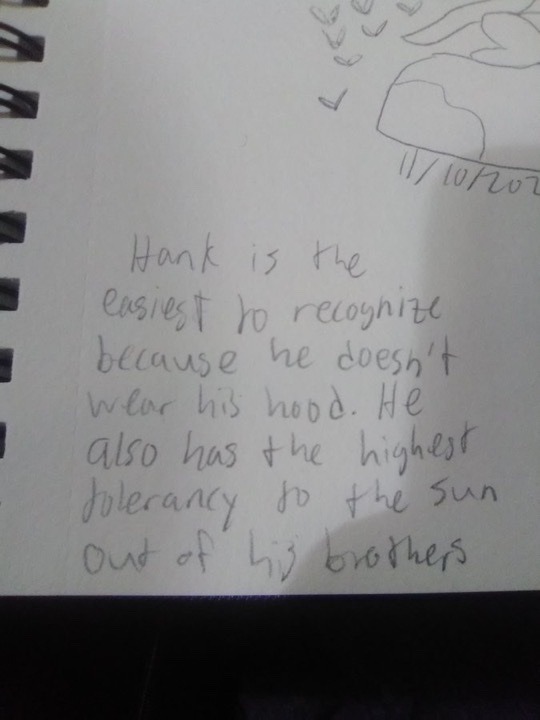 11/10/202
Hank is the
easiest to recognize
because he doesn't
wear his hood. He
also has the highest
tolerancy to the sun
out of his brothers